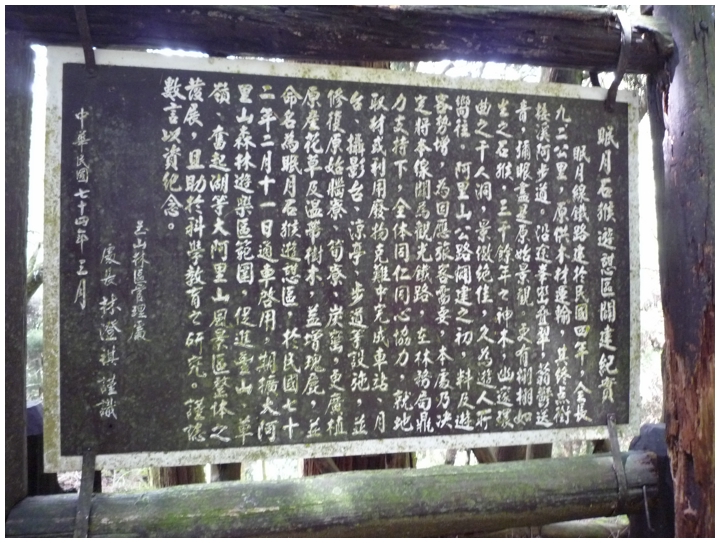 眠月石猴遊憩區闢建紀實
眠月線鐵路建於民國四年，全長
九二公里，原供木材運輸，其終点銜
接溪阿步道。沿途峯巒疊翠，蓊鬱送
青，舉眼盡是原始景觀，更有栩栩如
生之石猴，三千餘年之神木，幽邃環
曲之千人洞，景緻絕佳，久為遊人所
嚮往，阿里山公路闢建之初，料及遊
客勢增，為因應旅客需要，本處乃決
定將本線闢為觀光鐵路，在林務局鼎
力支持下，全体同仁同心協力，就地
取材或利用廢物克難中完成車站、月
台、攝影台、涼亭、步道等設施，並
修復原始臘寮、筍寮、炭窯，更廣植
原產花草及温帶樹木，益增瑰麗，並
命名為眠月石猴遊憩區，於民國七十
二年二月十一日通車啓用，期擴大阿
里山森林遊樂區範圍，促進疊山、草
嶺、奮起湖等大阿里山風景區整体之
發展，且助於科學教育之研究。謹誌
數言以資紀念。
玉山林區管理處
處長 林澄祺 謹識
中華民國七十四年三月